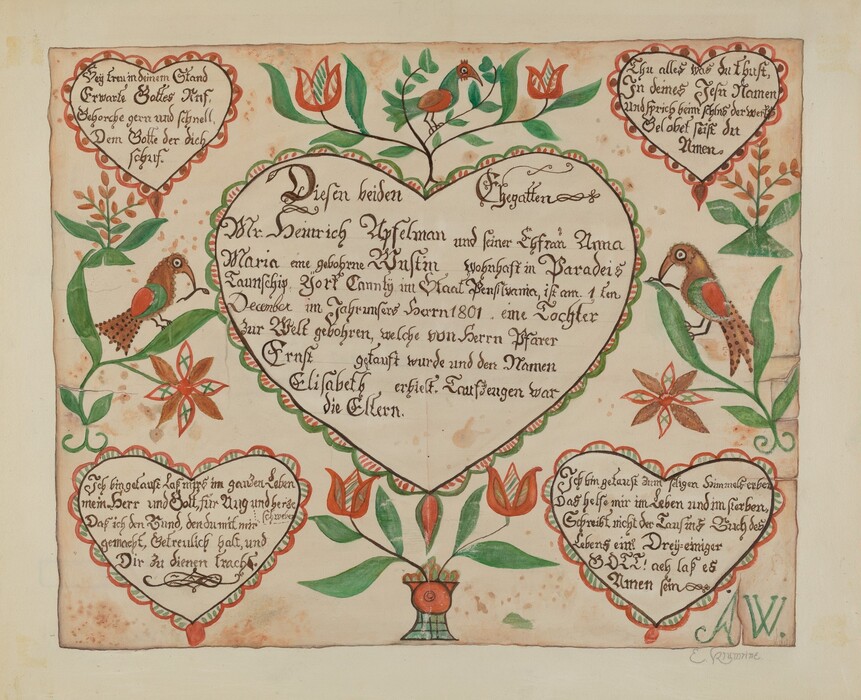 Sey treu in deinem Stand
Erwarte Gottes Ruf,
Gehorche gern und schnell,
Dem Gotte der dich
schuf.
Thu alles was du thust,
In deines Jesu Namen
Und sprich beim schlus der werke
Gelobet seist du
Amen.
Diesen beiden Ehegatten
Mr. Henrich Apfelman und seiner Ehfrau Anna
Maria eine gebohrne Wustin wohnhaft in Paradeis
Taunschip York Caunty im Staat Pensilvania, ist am 1 ten
December im Jahr unsers Herrn 1801. eine Tochter
zur Welt gebohren, welche von Herrn Pfarer
Ernst getauft wurde und den Namen
Elisabeth erhielt. Taufzeugen war
die Eltern.
Ich bin getauft laß mirs im ganzen Leben
mein Herr und Gott, für Aug und herze
schweben
Daß ich den Bund, den du mit mir
gemacht, Getreulich halt, und
Dir zu dienen tracht.
Ich bin getauft zum seligen Himmels erben
Das helfe mir im Leben und im sterben,
Schreibt nicht der Tauf ins Buch des
Lebens ein! Drey-einiger
GOTT! ach laß es
Amen sein
A W.